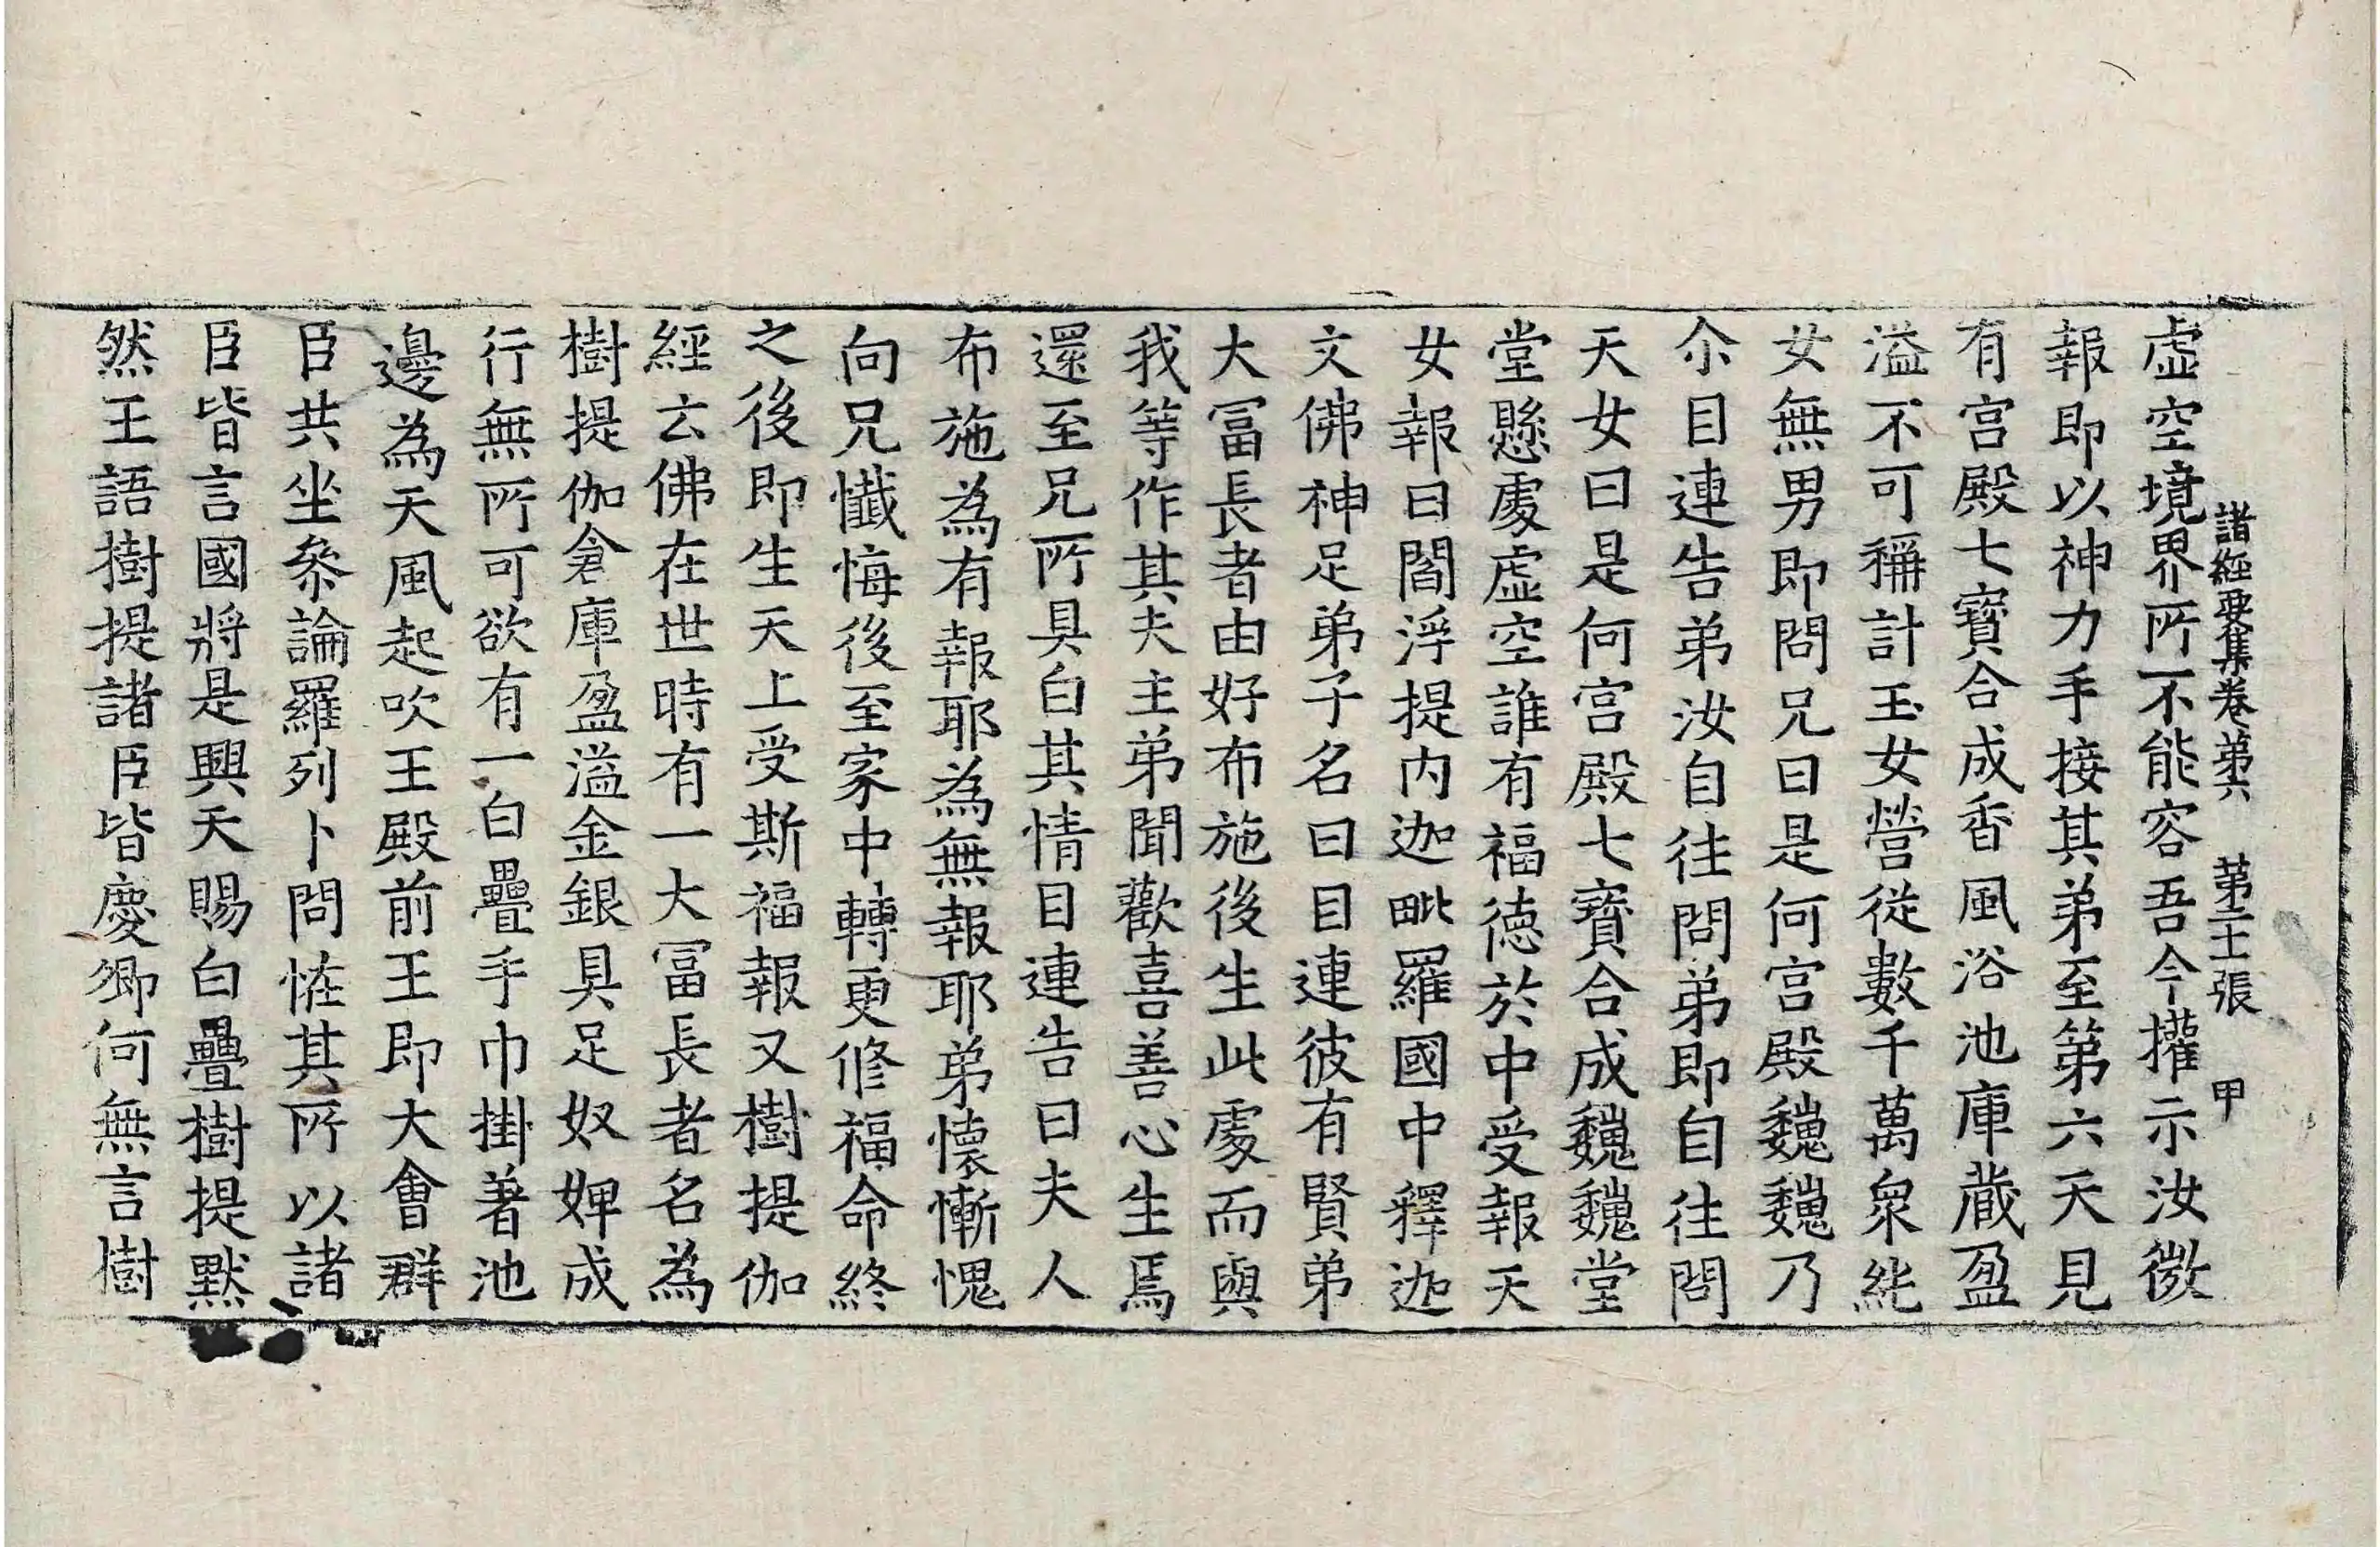 諸經要集卷第六 第二十張 甲
虛空境界所不能容吾今權示汝微
報即以神力手接其弟至第六天見
有宮殿七寶合成香風浴池庫藏盈
溢不可稱計玉女營從數千萬眾純
女無男即問兄曰是何宮殿巍巍乃
尒目連告弟汝自往問弟即自往問
天女曰是何宮殿七寶合成巍巍堂
堂懸處虛空誰有福德於中受報天
女報曰閻浮提內迦毗羅國中釋迦
文佛神足弟子名曰目連彼有賢弟
大冨長者由好布施後生此處而與
我等作其夫主弟聞歡喜善心生焉
還至兄所具白其情目連告曰夫人
布施為有報耶為無報耶弟懷慚愧
向兄懺悔後至家中轉更修福命終
之後即生天上受斯福報又樹提伽
經云佛在世時有一大冨長者名為
樹提伽倉庫盈溢金銀具足奴婢成
行無所可欲有一白疊手巾掛著池
邊為天風起吹王殿前王即大會群
臣共坐叅論羅列卜問恠其所以諸
臣皆言國將是興天賜白疊樹提默
然王語樹提諸臣皆慶卿何無言樹